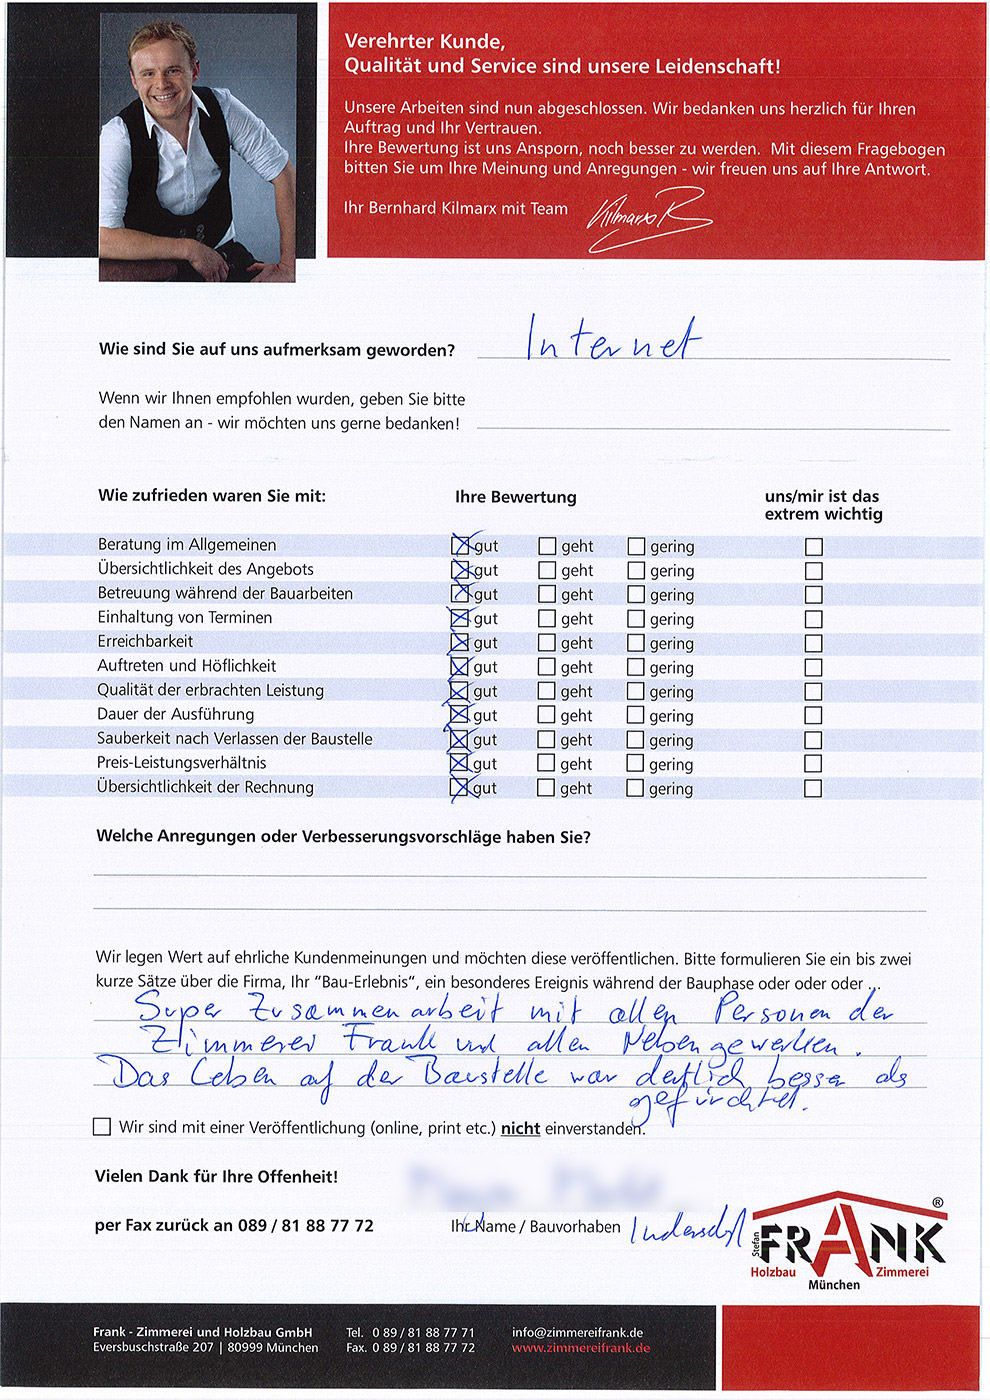 Verehrter Kunde,
Qualität und Service sind unsere Leidenschaft!
Unsere Arbeiten sind nun abgeschlossen. Wir bedanken uns herzlich für Ihren
Auftrag und Ihr Vertrauen.
Ihre Bewertung ist uns Ansporn, noch besser zu werden. Mit diesem Fragebogen
bitten Sie um Ihre Meinung und Anregungen - wir freuen uns auf Ihre Antwort.
Ihr Bernhard Kilmarx mit Team Kilmarx B
Wie sind Sie auf uns aufmerksam geworden? Internet
Wenn wir Ihnen empfohlen wurden, geben Sie bitte
den Namen an - wir möchten uns gerne bedanken!
Wie zufrieden waren Sie mit: Ihre Bewertung uns/mir ist das
extrem wichtig
Beratung im Allgemeinen gut geht gering
Übersichtlichkeit des Angebots gut geht gering
Betreuung während der Bauarbeiten gut geht gering
Einhaltung von Terminen gut geht gering
Erreichbarkeit gut geht gering
Auftreten und Höflichkeit gut geht gering
Qualität der erbrachten Leistung gut geht gering
Dauer der Ausführung gut geht gering
Sauberkeit nach Verlassen der Baustelle gut geht gering
Preis-Leistungsverhältnis gut geht gering
Übersichtlichkeit der Rechnung gut geht gering
Welche Anregungen oder Verbesserungsvorschläge haben Sie?
Wir legen Wert auf ehrliche Kundenmeinungen und möchten diese veröffentlichen. Bitte formulieren Sie ein bis zwei
kurze Sätze über die Firma, Ihr "Bau-Erlebnis", ein besonderes Ereignis während der Bauphase oder oder oder ...
Super Zusammenarbeit mit allen Personen der
Zimmerei Frank und allen Nebengewerken.
Das Leben auf der Baustelle war deutlich besser als
gefürchtet.
Wir sind mit einer Veröffentlichung (online, print etc.) nicht einverstanden.
Vielen Dank für Ihre Offenheit!
per Fax zurück an 089 / 81 88 77 72 Ihr Name / Bauvorhaben Indersdorf
Stefan FRANK ®
Holzbau Zimmerei
München
Frank - Zimmerei und Holzbau GmbH Tel. 0 89 / 81 88 77 71 info@zimmereifrank.de
Eversbuschstraße 207 | 80999 München Fax. 0 89 / 81 88 77 72 www.zimmereifrank.de